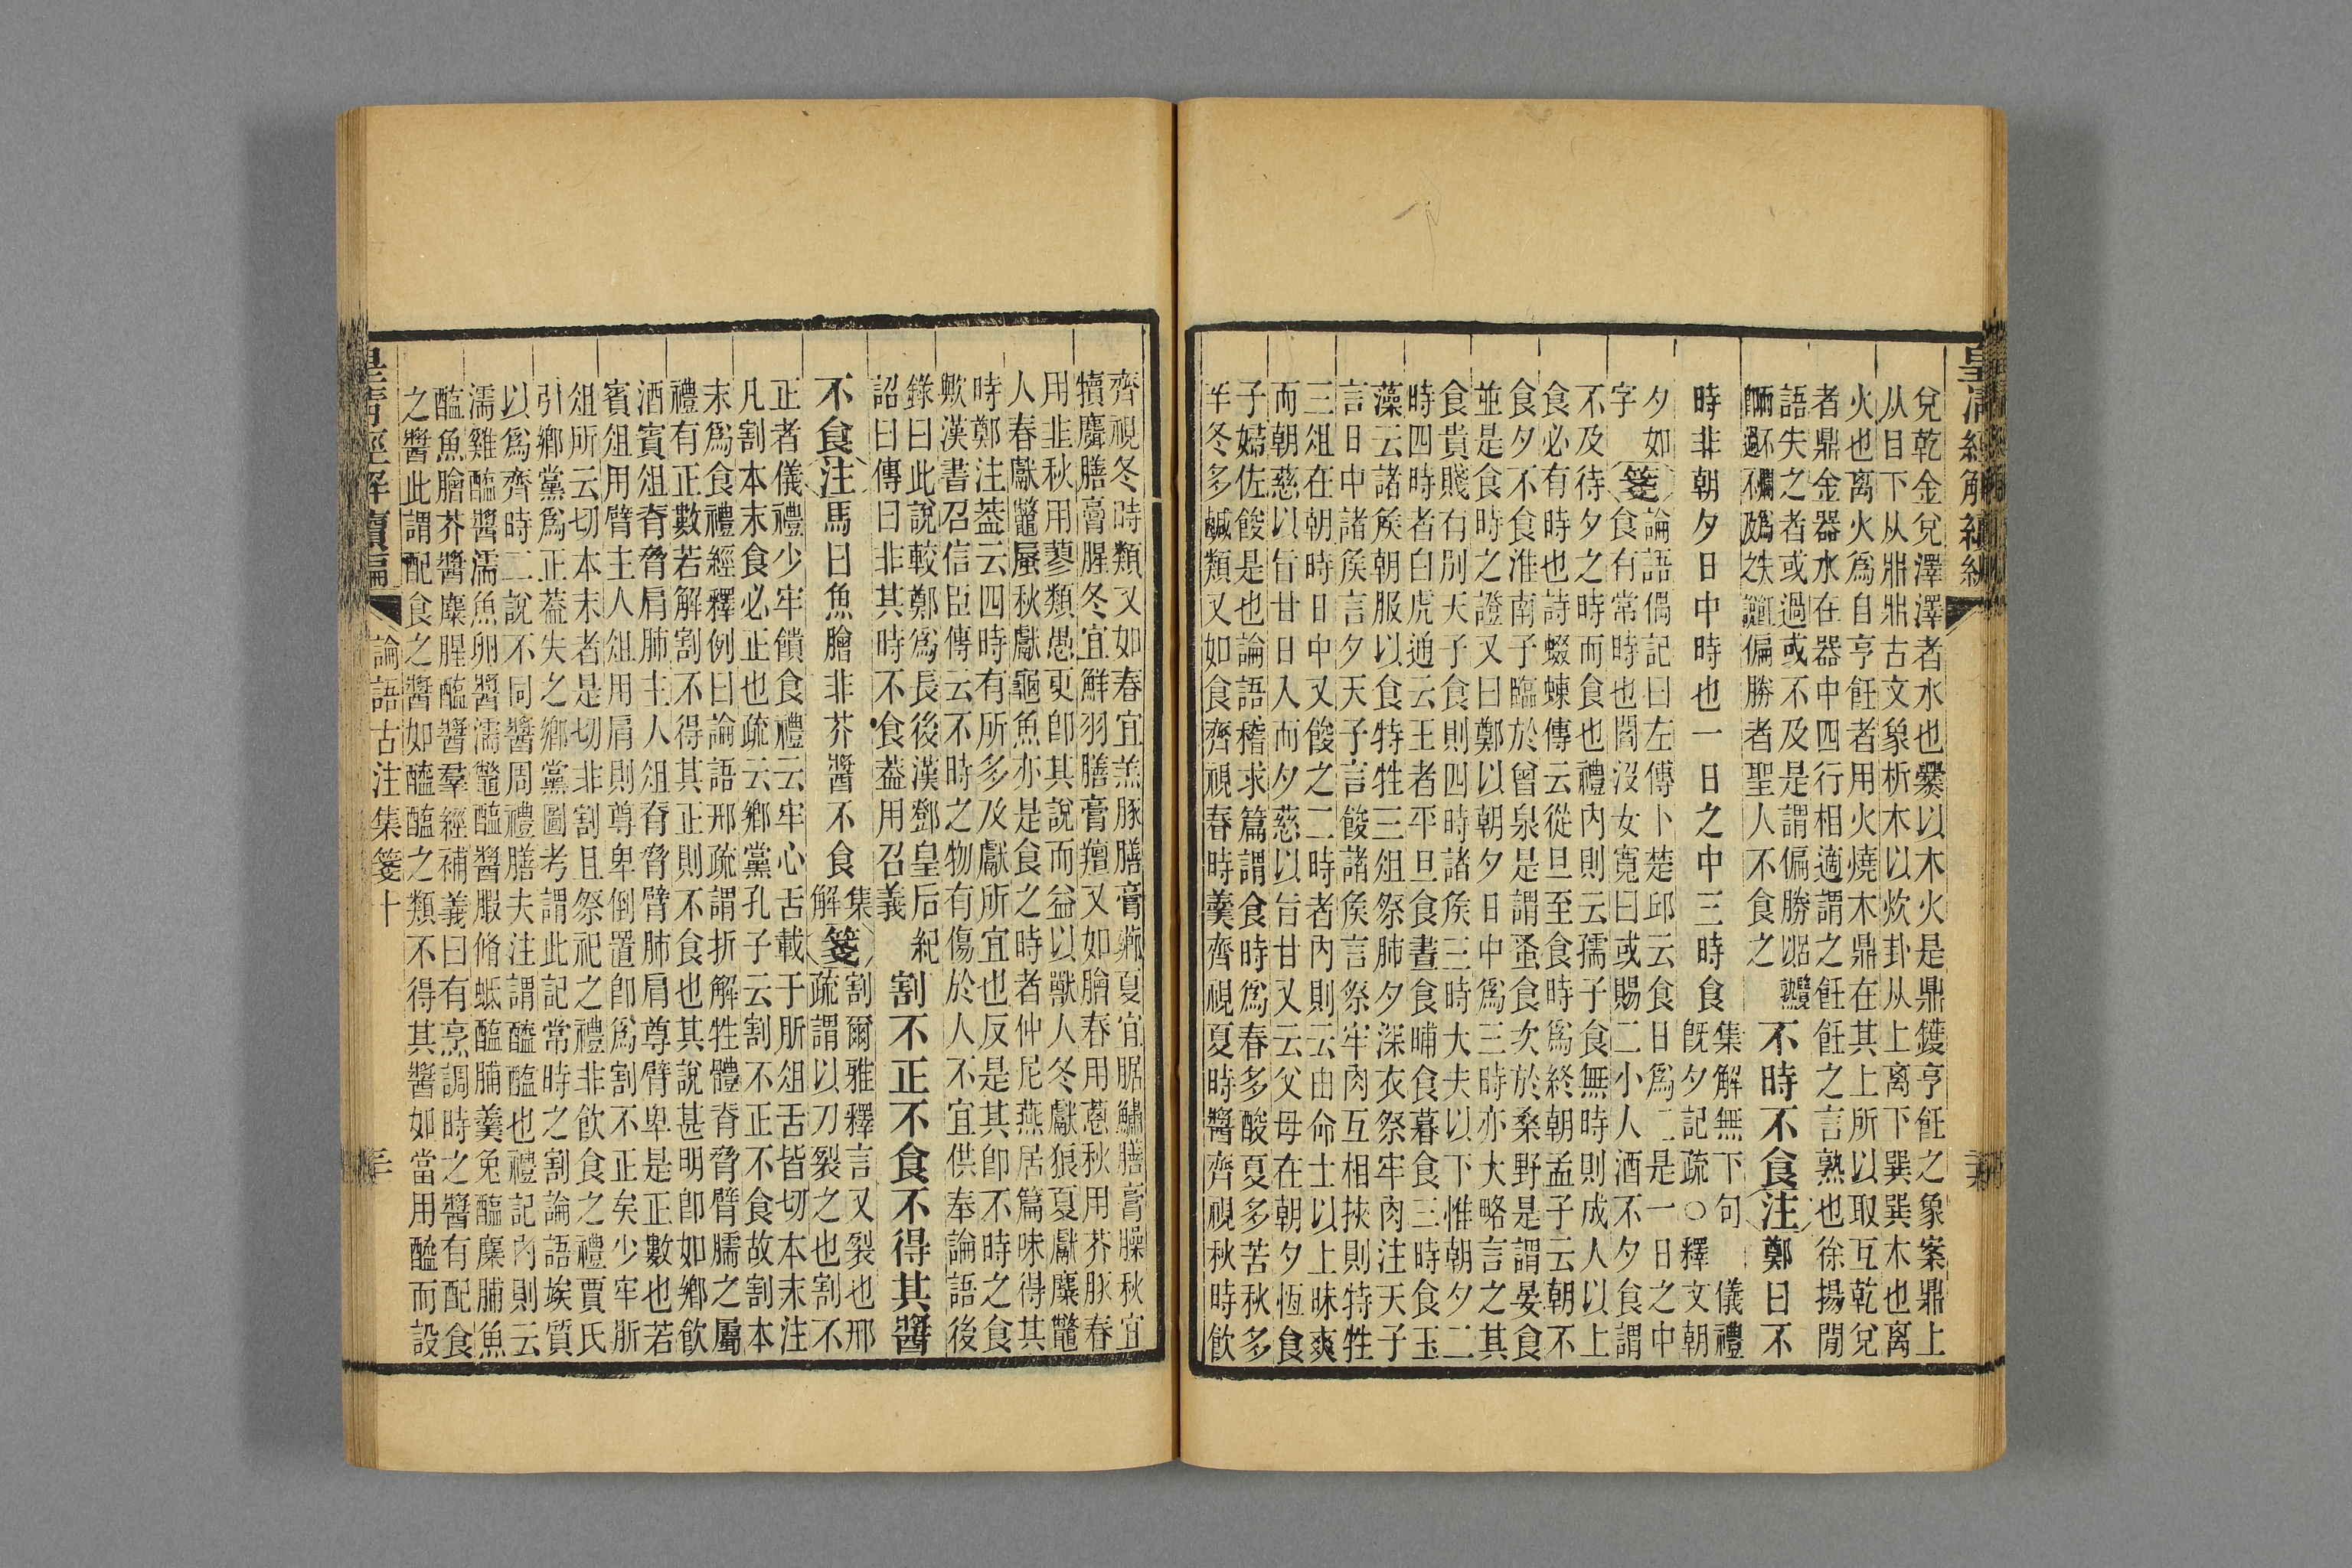 皇清經解續編
兌乾金兌澤澤者水也爨以木火是鼎鑊亨飪之象案鼎上
从目下从鼎鼎古文象析木以炊卦从上離下巽巽木也离
火也离火爲自亨飪者用火燒木鼎在其上所以取互乾兌
者鼎金器水在器中四行相適謂之飪飪之言熟也徐揚閒
語失之者或過或不及是謂偏勝
偏勝者聖人不食之
不時不食注鄭曰不
時非朝夕日中時也一日之中三時食
集解無下句 儀禮
既夕記疏○釋文朝
夕如
字
箋
論語偶記曰左傳卜楚邱云食日爲二是一日之中
食有常時也閻沒女寬曰或賜二小人酒不夕食謂
不及待夕之時而食也禮內則云孺子食無時則成人以上
食必有時也詩蝃蝀傳云從旦至食時爲終朝孟子云朝不
食夕不食淮南子臨於曾泉是謂蚤食次於桑野是謂晏食
並是食時之證又曰鄭以朝夕日中爲三時亦大略言之其
食貴賤有別天子食則四時諸矦三時大夫以下惟朝夕二
時四時者白虎通云王者平旦食晝食晡食暮食三時食玉
藻云諸矦朝服以食特牲三俎祭肺夕深衣祭牢肉注天子
言日中諸矦言夕天子言餕諸矦言祭牢肉互相挾則特牲
三俎在朝時日中又餕之二時者內則云由命士以上昧爽
而朝慈以旨甘日入而夕慈以旨甘又云父母在朝夕恆食
子婦佐餕是也論語稽求篇謂食時爲春多酸夏多苦秋多
辛冬多鹹類又如食齊視春時羹齊視夏時醬齊視秋時飮
齊視冬時類又如春宜羔豚膳膏薌夏宜腒鱐膳膏臊秋宜
犢麛膳膏腥冬宜鮮羽膳膏羶又如膾春用蔥秋用芥豚春
用韭秋用蓼類愚更卽其說而益以獸人冬獻狼夏獻麋鼈
人春獻鼈蜃秋獻龜魚亦是食之時者仲尼燕居篇味得其
時鄭注葢云四時有所多及獻所宜也反是其卽不時之食
歟漢書召信臣傳云不時之物有傷於人不宜供奉論語後
錄曰此說較鄭爲長後漢鄧皇后紀
詔曰傳曰非其時不食葢用召義
割不正不食不得其醬
不食注馬曰魚膾非芥醬不食
集
解
箋
割爾雅釋言又裂也邢
疏謂以刀裂之也割不
正者儀禮少牢饋食禮云牢心舌載于肵俎舌皆切本末注
凡割本末食必正也疏云鄉黨孔子云割不正不食故割本
末爲食禮經釋例曰論語邢疏謂折解牲體脊脅臂臑之屬
禮有正數若解割不得其正則不食也其說甚明卽如鄉飮
酒賓俎脊脅肩肺主人俎脊脅臂肺肩尊臂卑是正數也若
賓俎用臂主人俎用肩則尊卑倒置卽爲割不正矣少牢肵
俎所云切本末者是切非割且祭祀之禮非飮食之禮賈氏
引鄉黨爲正葢失之鄉黨圖考謂此記常時之割論語竢質
以爲齊時二說不同醬周禮膳夫注謂醯醢也禮記內則云
濡雞醢醬濡魚卵醬濡鼈醢醬腶脩蚳醢脯羹兔醢麋脯魚
醢魚膾芥醬麋腥醢醬羣經補義曰有烹調時之醬有配食
之醬此謂配食之醬如醯醢之類不得其醬如當用醯而設
皇淸經解續編
論語古注集箋十